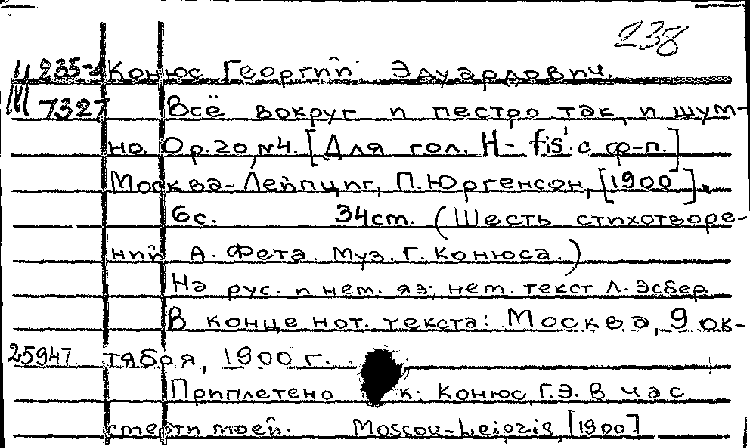 238
М 235-2 Конюс Георгий Эдуардович.
7327 Всё вокруг и пестро так, и шум-
но. Op.20, №4. [Для гол. H-fis¹ с ф-п.]
Москва-Лейпциг, П.Юргенсон, [1900].
6с. 34cm. (Шесть стихотворе-
ний А. Фета. Муз. Г. Конюса.)
На рус. и нем. яз; нем. текст Л. Эсбер
В конце нот. текста: Москва, 9 ок-
25947 тября, 1900 г.
Приплетено к: Конюс, Г.Э. В час
смерти моей. Moscou-Leipzig, [1900]